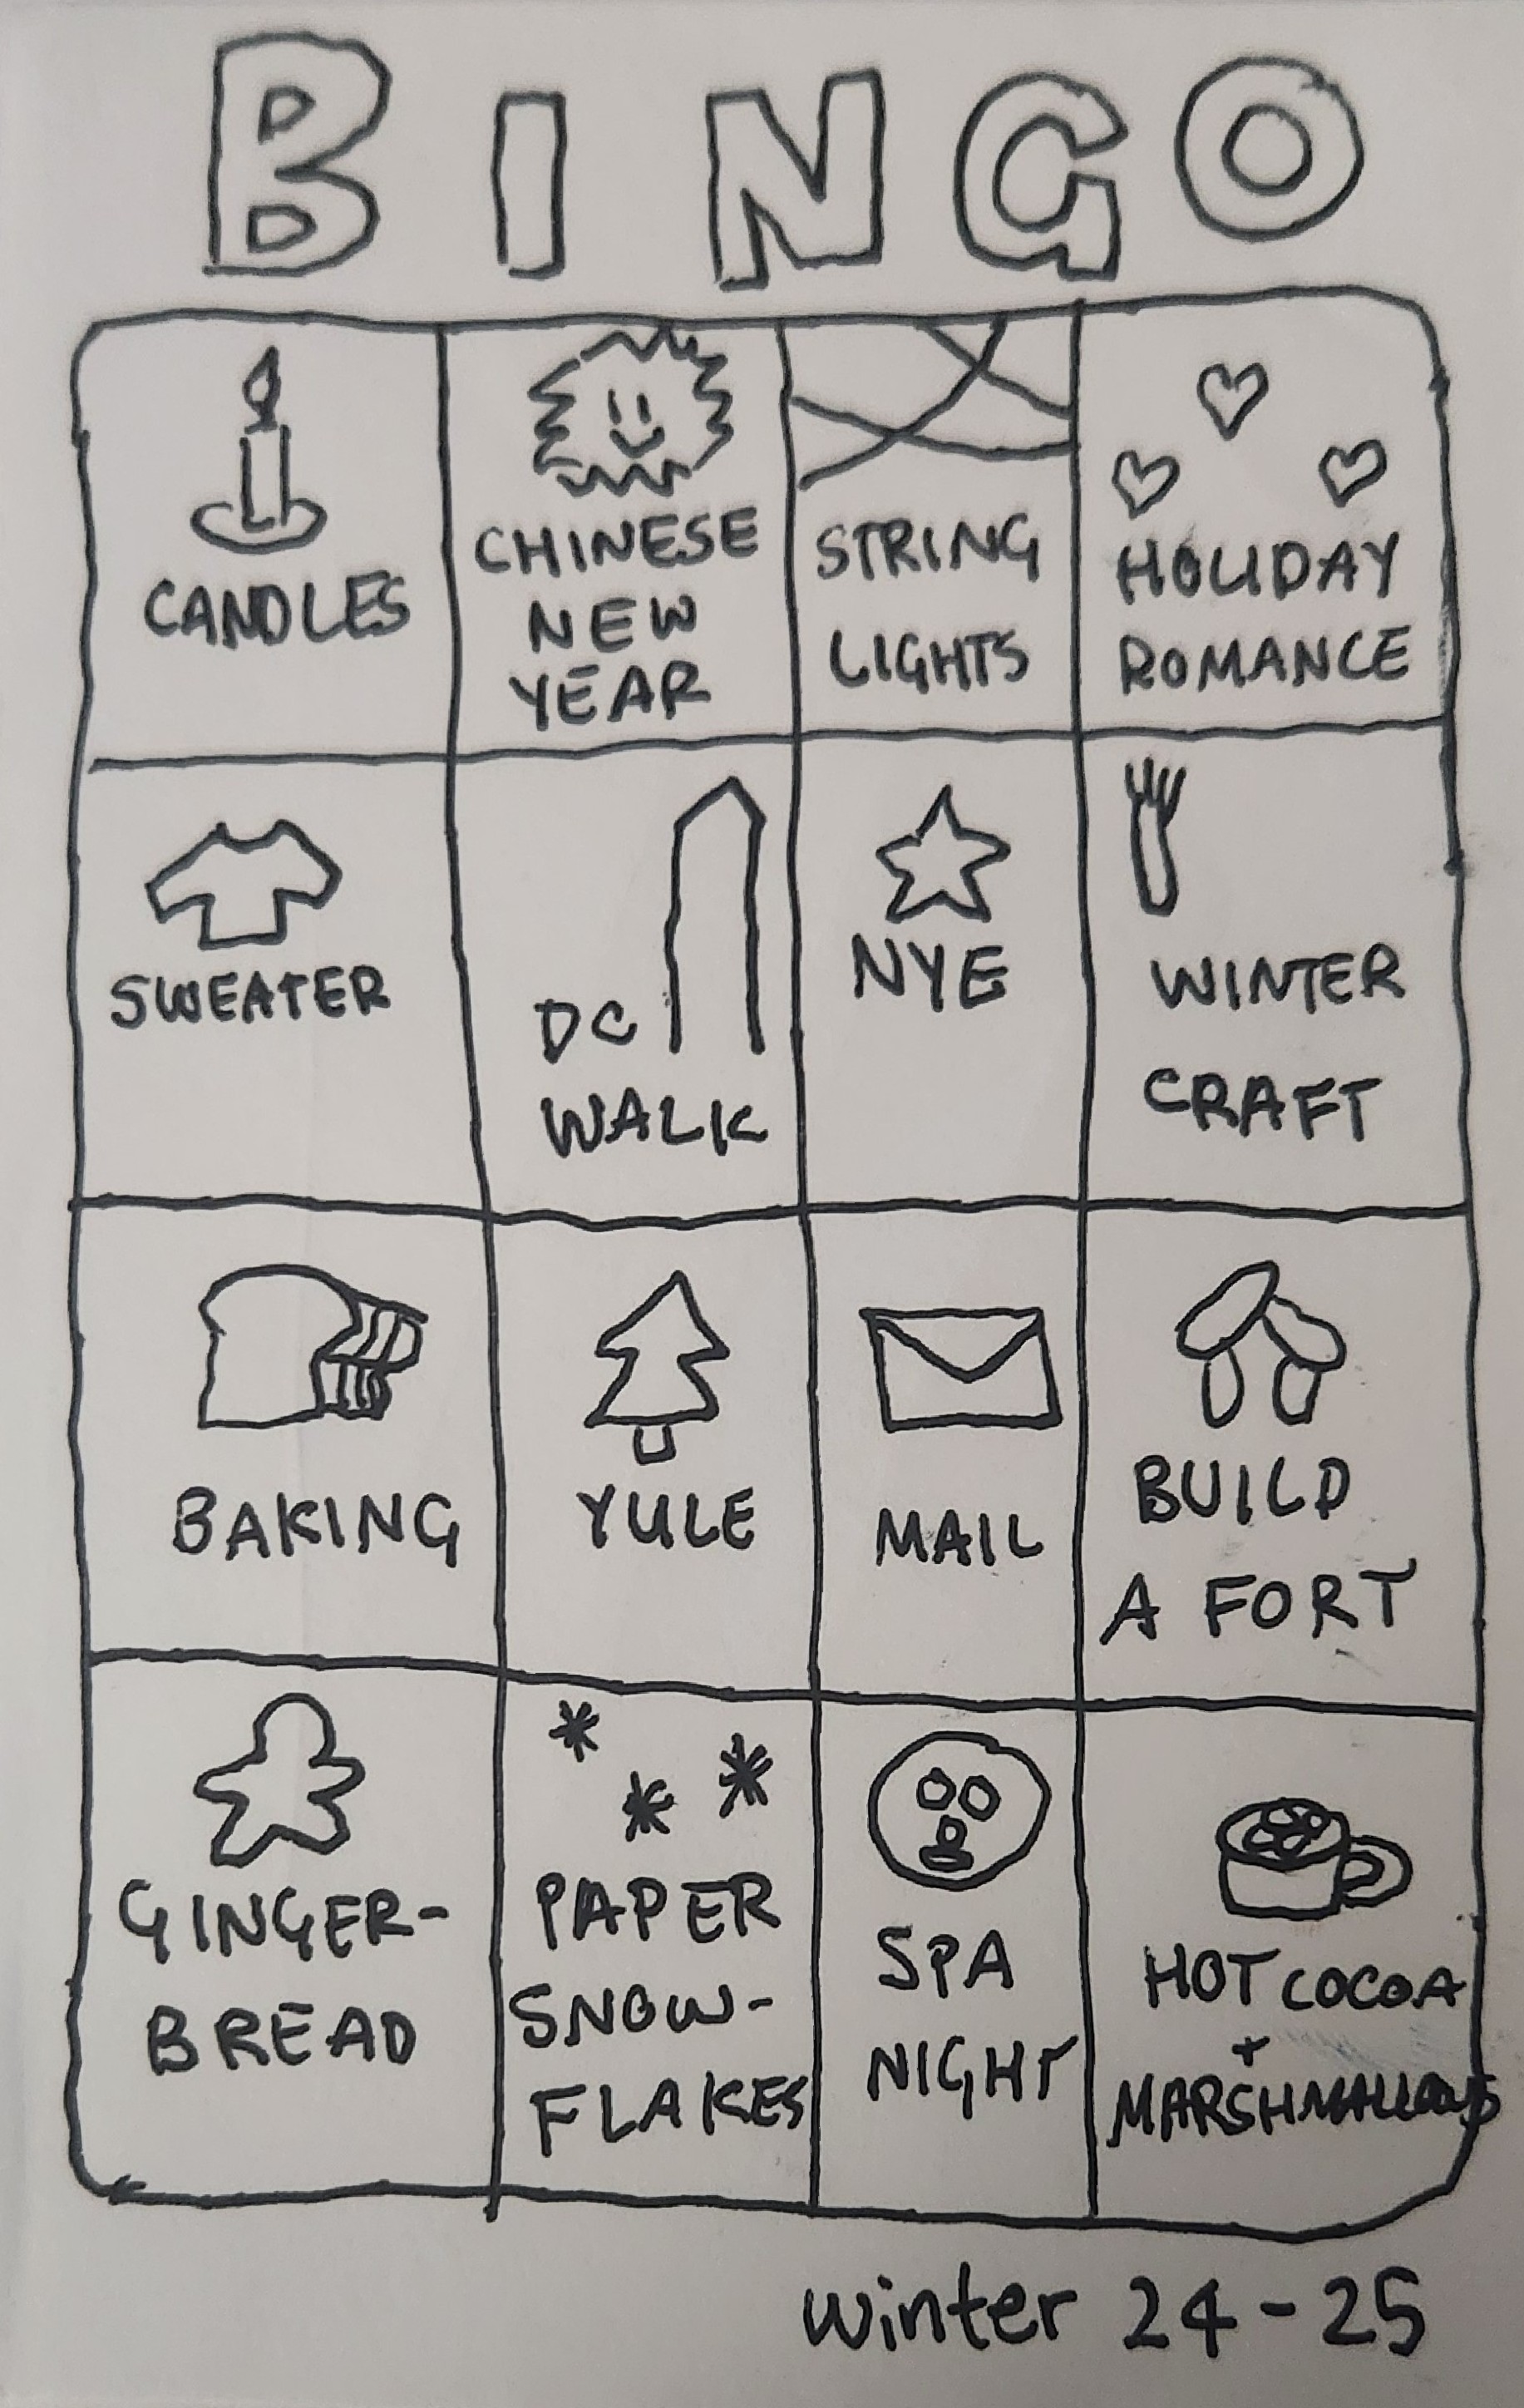 BINGO
CANDLES
CHINESE
NEW
YEAR
STRING
LIGHTS
HOLIDAY
ROMANCE
SWEATER
DC
WALK
NYE
WINTER
CRAFT
BAKING
YULE
MAIL
BUILD
A FORT
GINGER-
BREAD
PAPER
SNOW-
FLAKES
SPA
NIGHT
HOT COCOA
+
MARSHMALLOWS
winter 24-25